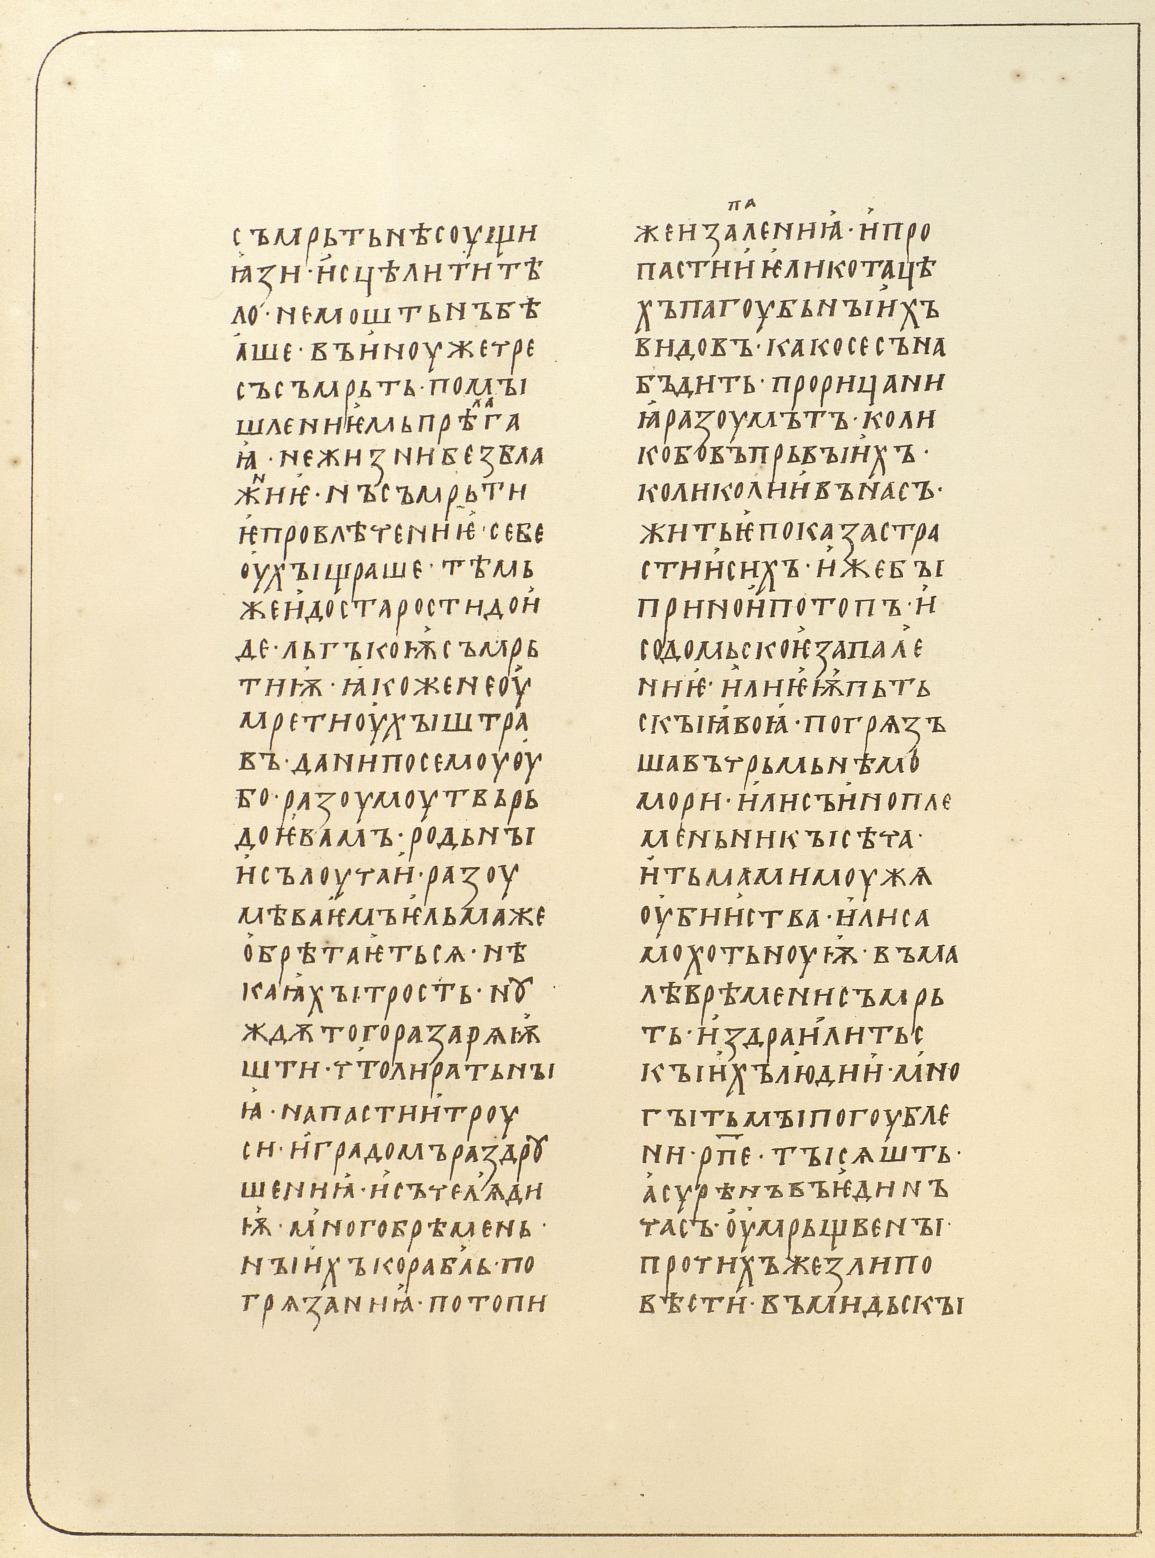 съмрьтьнѣсоущи
ꙗзн·исцѣлититѣ
ло·немоштьнъбѣ
аше·въиноужетре
съсъмрьть·помъі
шленниѥмьпрѣлага
ꙗ·нежизнибезвла
жниѥ·нъсъмрьти
ѥпровлѣчениѥ·себе
оухъіщраше·тѣмь
жеидостаростидои
де·льгъкоѭсъмрь
тиѭ·ꙗкоженеоу
мретноухъіштра
въ·данипосемоуоу
бо·разоумоутвърь
доѥвамъ·родьнъі
исълоучаи·разоу
мѣваѥмъѥльмаже
обрѣтаѥтьсѧ·нѣ
каꙗхъітрость·нꙋ
ждѫтогоразарѧѭ
шти·чтолиратьнъі
ꙗ·напастиитроу
си·иградомъраздрꙋ
шениꙗ·исъчелѧди
ѭ·многобрѣмень·
нъіихъкорабль·по
грѧзаниꙗ·потопи
жеизапалениꙗ·ипро
пастииѥликотацѣ
хъпагоубьнъіихъ
видовъ·какосесъна
бъдить·прорицани
ꙗразоумътъ·коли
кобовъпрьвъіихъ·
коликолиивънасъ·
житьѥпоказастра
стиисихъ·ижебъі
приноипотопъ·и
содомьскоѥзапале
ниѥ·илиѥѭпьть
скъіꙗвоꙗ·погрѧзъ
шавъчрьмьнѣмо
мори·илисъинопле
меньникъісѣча·
итьмамимоужѧ
оубииства·илиса
мохотьноуѭ·въма
лѣврѣменисъмрь
ть·издраилитьс
къіихълюдии·мно
гъітьмъіпогоубле
ни·рпе·тъісѧшть·
асурѣнъвъѥдинъ
часъ·оумрьщвенъі·
прочихъжезлипо
вѣсти·въмидьскъі